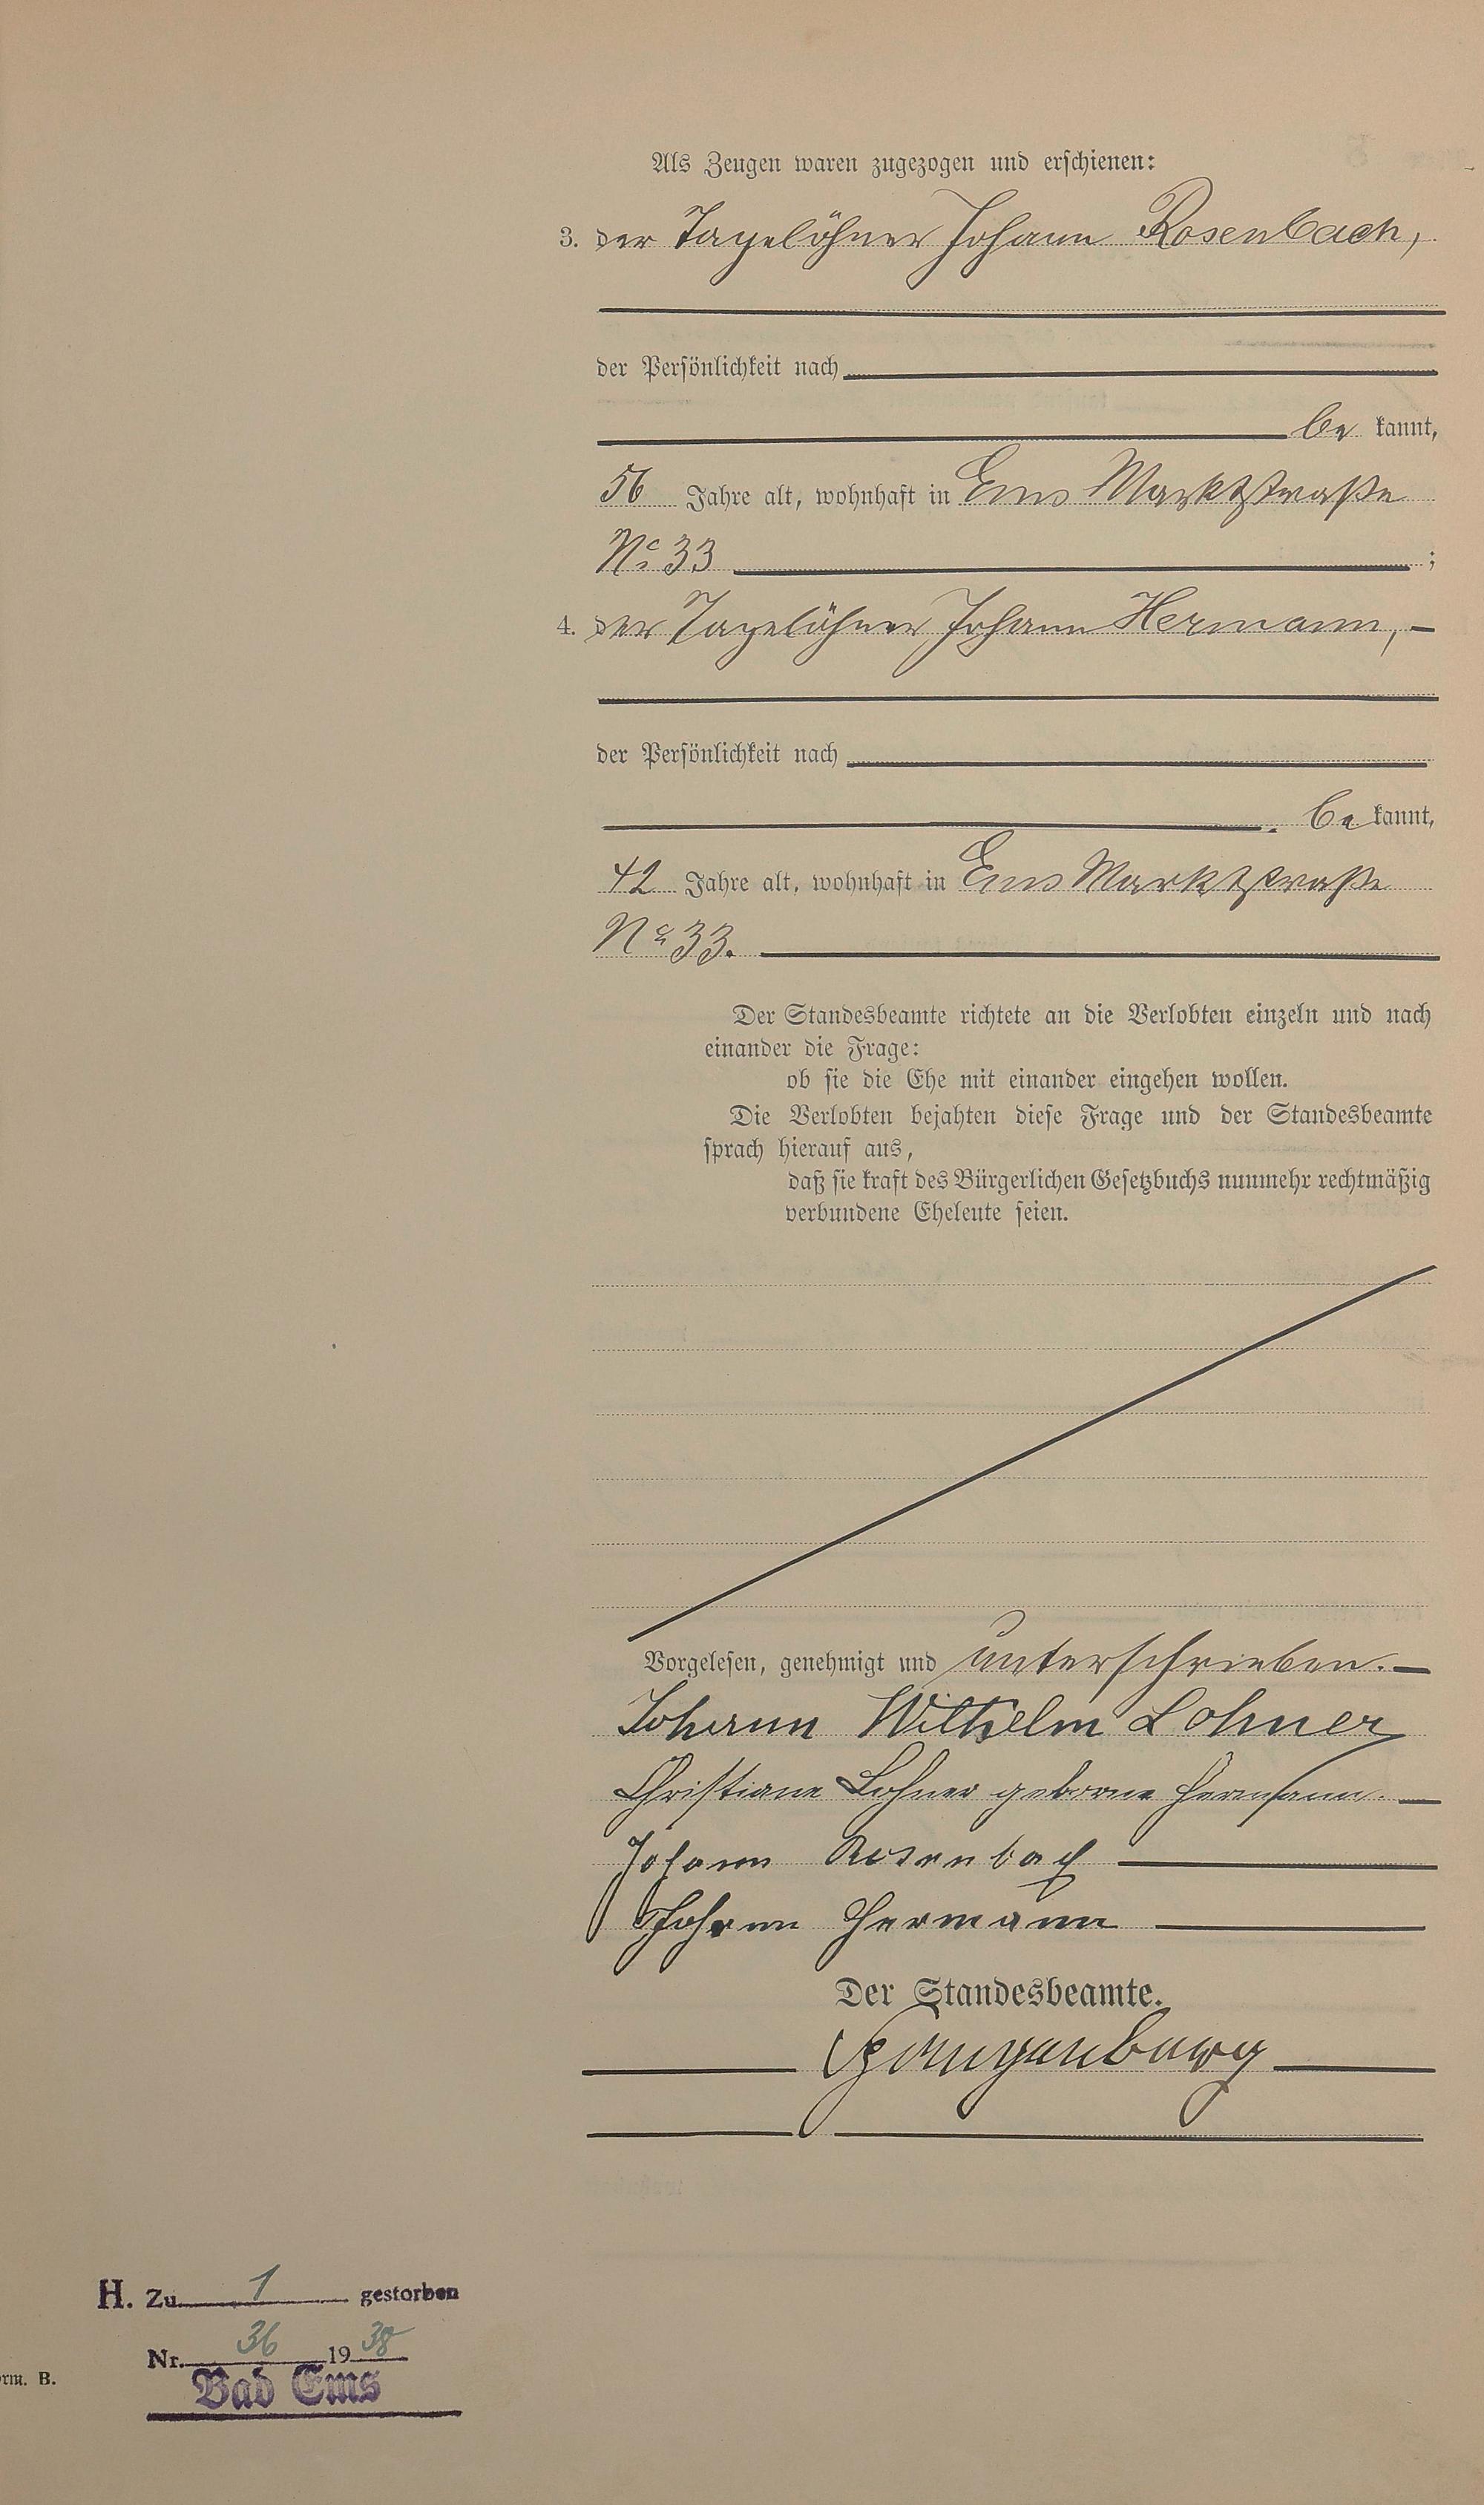 Als Zeugen waren zugezogen und erschienen:
3. der Tagelöhner Johann Rosenbach,
der Persönlichkeit nach
be kannt,
56 Jahre alt, wohnhaft in Ems Marktstraße
No 33 ;
4. der Tagelöhner Johann Hermann, –
der Persönlichkeit nach
be kannt,
42 Jahre alt, wohnhaft in Ems Marktstraße
No 33.
Der Standesbeamte richtete an die Verlobten einzeln und nach
einander die Frage:
ob sie die Ehe mit einander eingehen wollen.
Die Verlobten bejahten diese Frage und der Standesbeamte
sprach hierauf aus,
daß sie kraft des Bürgerlichen Gesetzbuchs nunmehr rechtmäßig
verbundene Eheleute seien.
Vorgelesen, genehmigt und unterschrieben. –
Johann Wilhelm Lohner
Christiane Lohner geborne Hermann.
Johann Rosenbach
Johann Hermann
Der Standesbeamte.
H. Zu 1 gestorben
Nr. 36 1938
Bad Ems
rm. B.